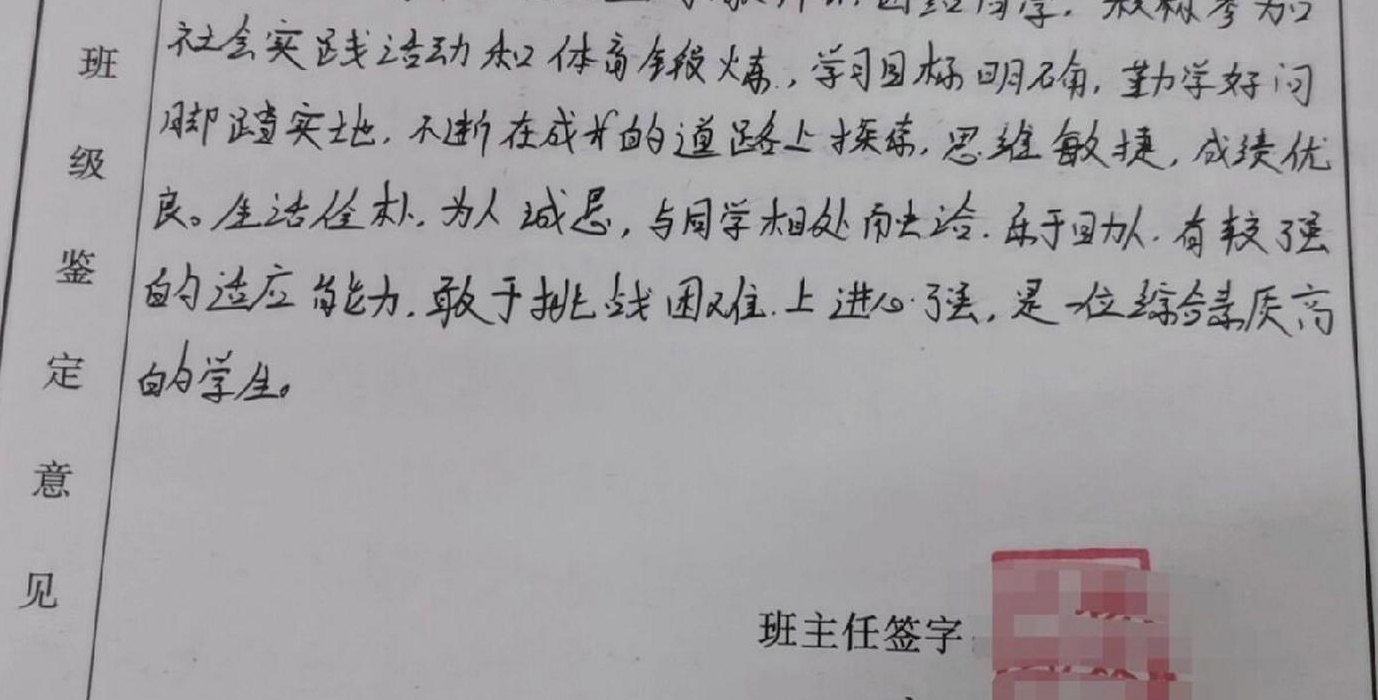 团结同学，积极参加
社会实践活动和体育锻炼，学习目标明确，勤学好问
脚踏实地，不断在成才的道路上探索，思维敏捷，成绩优
良。生活俭朴，为人诚恳，与同学相处融洽，乐于助人，有较强
的适应能力，敢于挑战困难，上进心强，是一位综合素质高
的学生。
班级鉴定意见
班主任签字